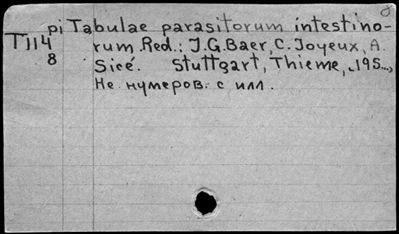 pi Tabulae parasitorum intestino-
T114 rum. Red.: J.G.Baer, C. Joyeux, A.
8 Sicé. Stuttgart, Thieme, 195...,
Не нумеров. с илл.